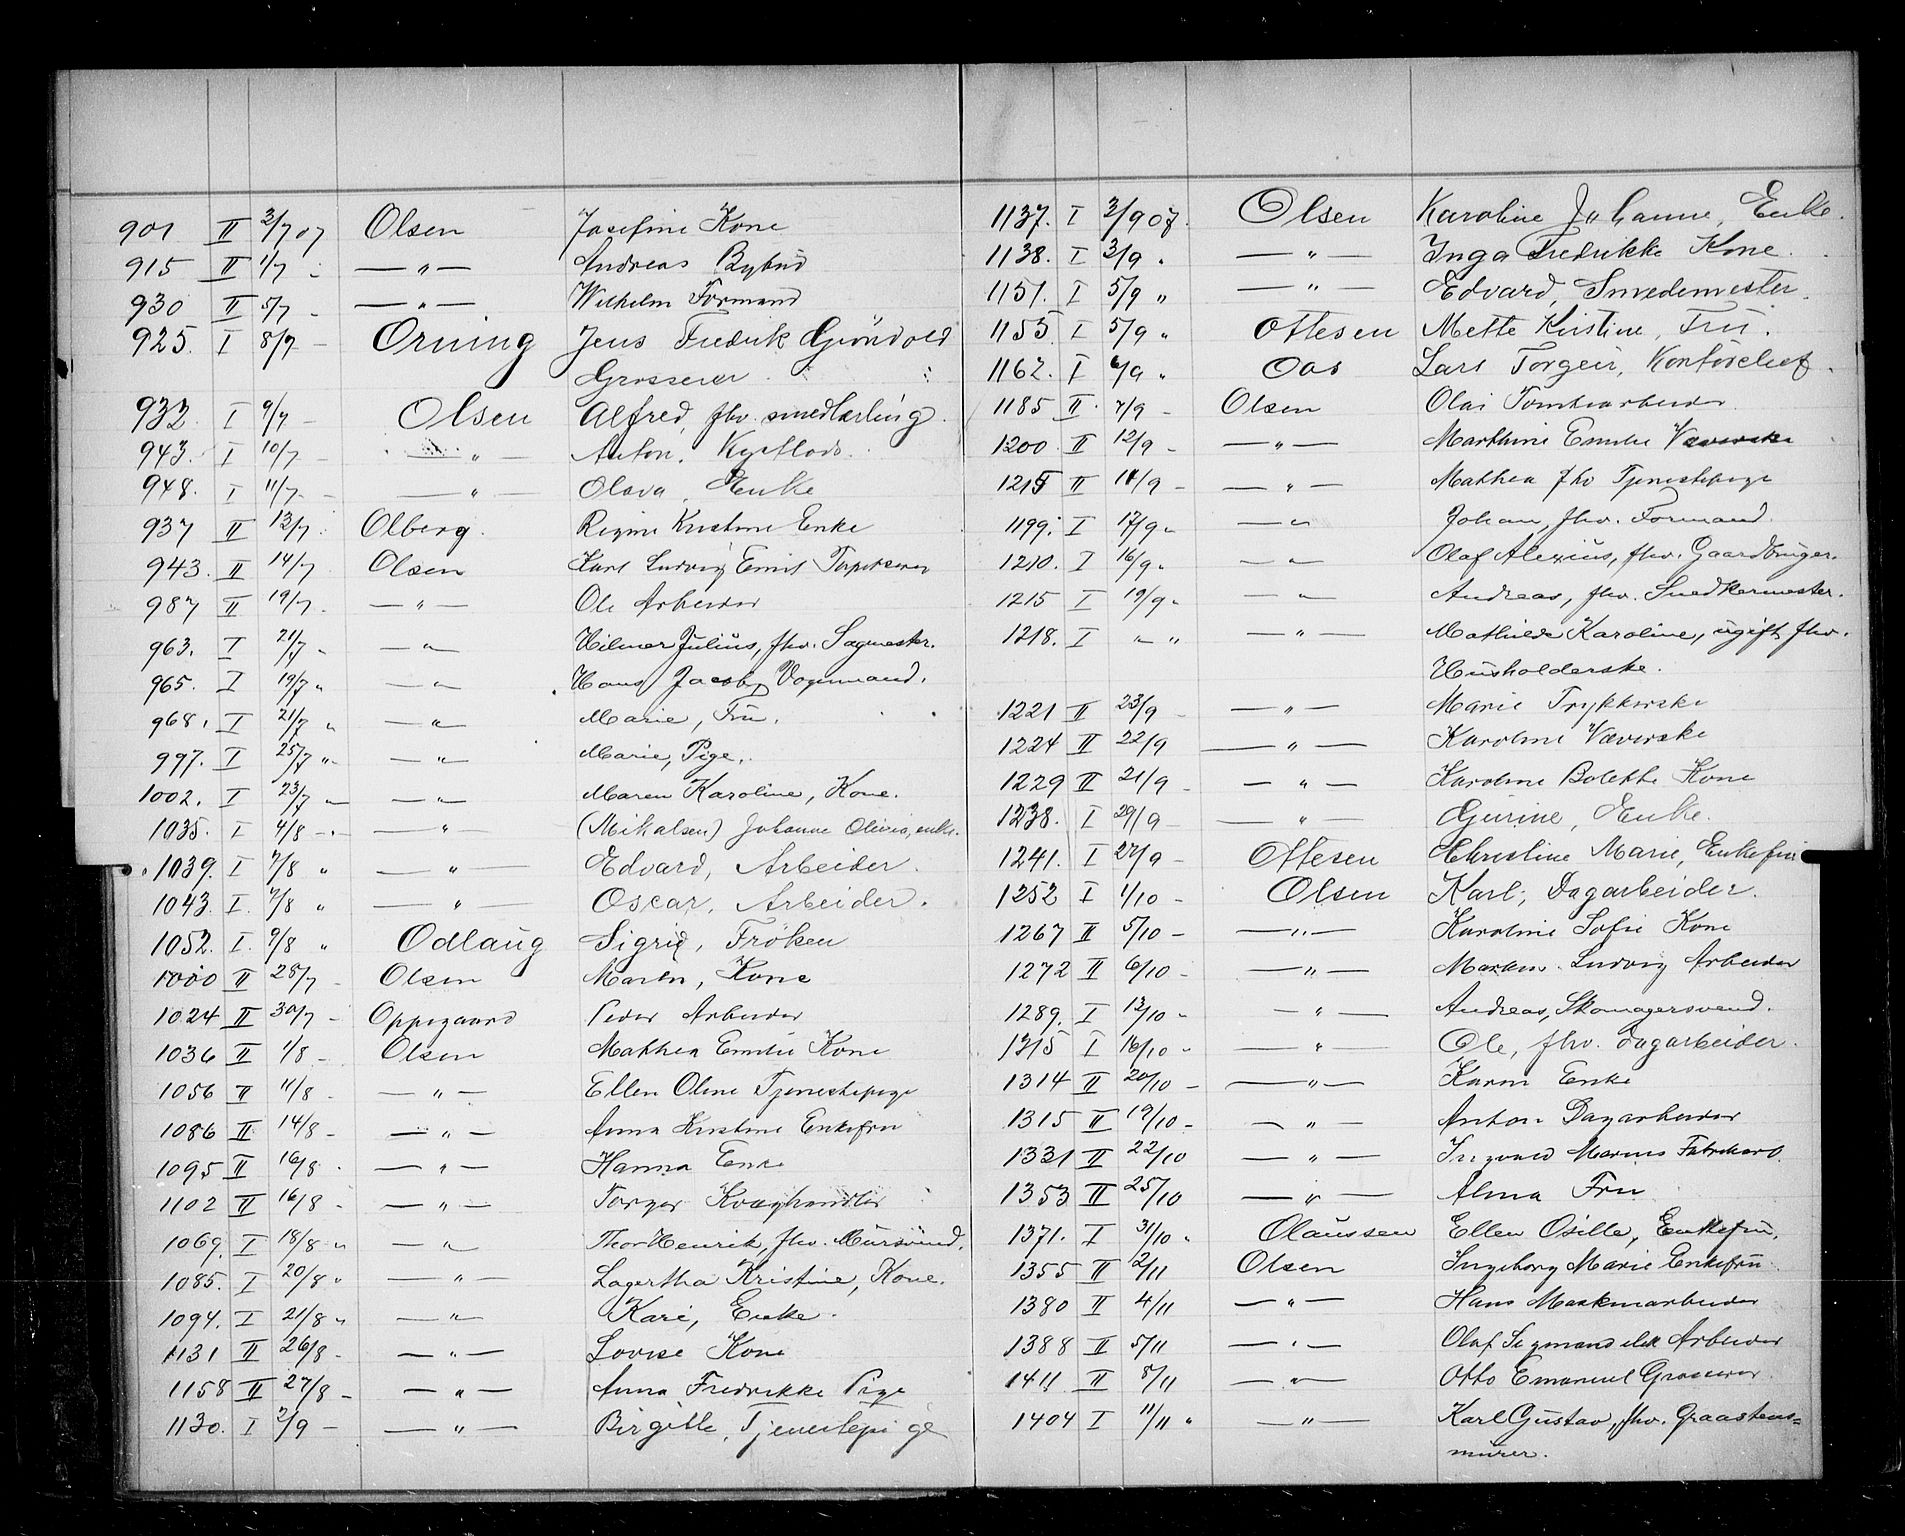 901 II 2/7 07 Olsen Josefine Kone
915 II 1/7 „ — „ — Andreas Bybud
930 II 5/7 — „ — Wilhelm Formand
925. I 8/7 — Orning Jens Fredrik Grøndvold
Grosserer
932. I 9/7 — Olsen Alfred, fhv. smedlærling.
943. I 10/7 — „ — Anton, Kystlods.
948. I 11/7 — — „ — Olava, Enke
937 II 13/7 Olberg. Regine Kristine Enke
943. II 14/7 Olsen Karl Ludvig Emil
987 II 19/7. — „ — Ole Arbeider
963. I 21/7 „ — „ — Hilmer Julius, fhv. Sagmester.
965. I 19/7 „ — „ — Hans Jacob, Vognmand.
968. I 21/7 „ — „ — Marie, Fru.
997. I 25/7 „ — „ — Marie, Pige.
1002. I 23/7 „ — „ — Maren Karoline, Kone.
1035. I 4/8 — — „ — (Mikalsen) Johanne Olivia, enke.
1039. I 7/8 „ — „ — Edvard, Arbeider.
1043. I. 7/8 „ — „ — Oscar, Arbeider.
1052. I. 9/8 „ Odlaug Sigrid, Frøken
1000 II 28/7 — Olsen Martin, Kone
1024 II 30/7 — Oppegaard Peder Arbeider
1036 II 1/8 — Olsen Mathea Emilie Kone
1056 II 11/8 — „ — Ellen Oline Tjenestepige
1086 II 14/8 — — „ — Anna Kristine Enkefru
1095 II 16/8 — „ — Hanna Enke
1102 II 16/8 — — „ — Torger Kvæghandler
1069. I 18/8 „ — „ — Thor Henrik, fhv. Mursvend.
1085. I 20/8 „ — „ — Lagertha Kristine, Kone.
1094. I 21/8 „ — „ — Kari, Enke.
1131 II 26/8 — — „ — Lovise Kone
1158 II 27/8 — — „ — Anna Fredrikke Pige
1130. I 2/9 — — „ — Birgitte, Tjenestepige
1137. I 3/9 07. Olsen Karoline Johanne, Enke.
1138. I 3/9 „ — „ — Inga Fredrikke Kone.
1151. I 5/9 „ — „ — Edvard, Smedemester.
1155. I 5/9 „ Ottesen Mette Kirstine, Fru.
1162. I 6/9 „ Oas Lars Torgeir, Kontorchef.
1185 II 7/9 — Olsen Olai Tomtearbeider
1200 II 12/9 — — „ — Marthine Emilie Væverske
1215 II 11/9 — — „ — Mathea fhv Tjenestepige
1199. I 17/9 „ — „ — Johan, fhv. Formand.
1210. I 16/9 „ — „ — Olaf Alexius, fhv. Gaardbruger.
1215 I 19/9 „ — „ — Andreas, fhv. Snedkermester.
1218. I „ „ — „ — Mathilde Karoline, ugift fhv.
Husholderske.
1221 II 23/9 — — „ — Marie Trykkerske
1224 II 22/9 — „ — Karoline Væverske
1229 II 21/9 — — „ — Karoline Bolette Kone
1238. I 29/9 — — „ — Gurine, Enke.
1241. I 27/9 — Ottesen Christine Marie, Enkefru
1252 I 1/10 — Olsen Karl, Dagarbeider.
1267 II 5/10 — — „ — Karoline Sofie Kone
1272 II 6/10 — — „ — Martin Ludvig Arbeider
1289. I 13/10 — — „ — Andreas, Skomagersvend.
1315 I 16/10 — — „ — Ole, fhv. Dagarbeider.
1314 II 20/10 — — „ — Karen Enke
1315 II 19/10 — — „ — Anton Dagarbeider
1331 II 22/10 — „ — Ingvald Marius Fabrikarb.
1353 II 25/10 — „ — Alma Fru
1371. I 31/10 „ Olaussen Ellen Osille, Enkefru.
1355 II 2/11 Olsen Ingeborg Marie Enkefru
1380 II 4/11 — „ — Hans Maskinarbeider
1388 II 5/11 — „ — Olaf Arbeider
1411 II 8/11 — „ — Otto Emanuel Grosserer
1404 I 11/11 „ — „ — Karl Gustav, fhv. Graastens=
murer.